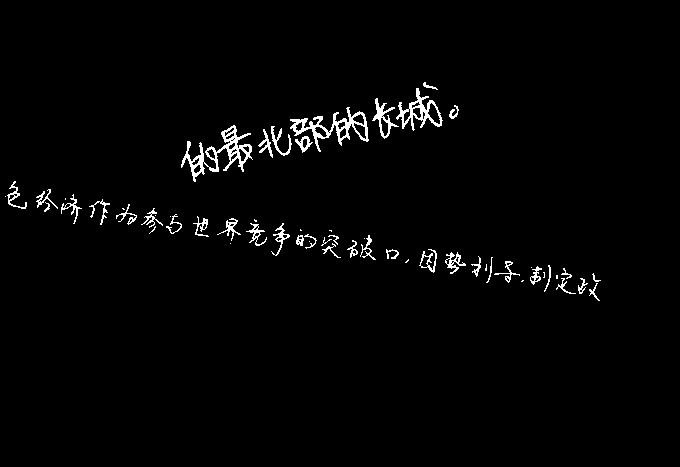 的最北部的长城。
色经济作为参与世界竞争的突破口,因势利导,制定政